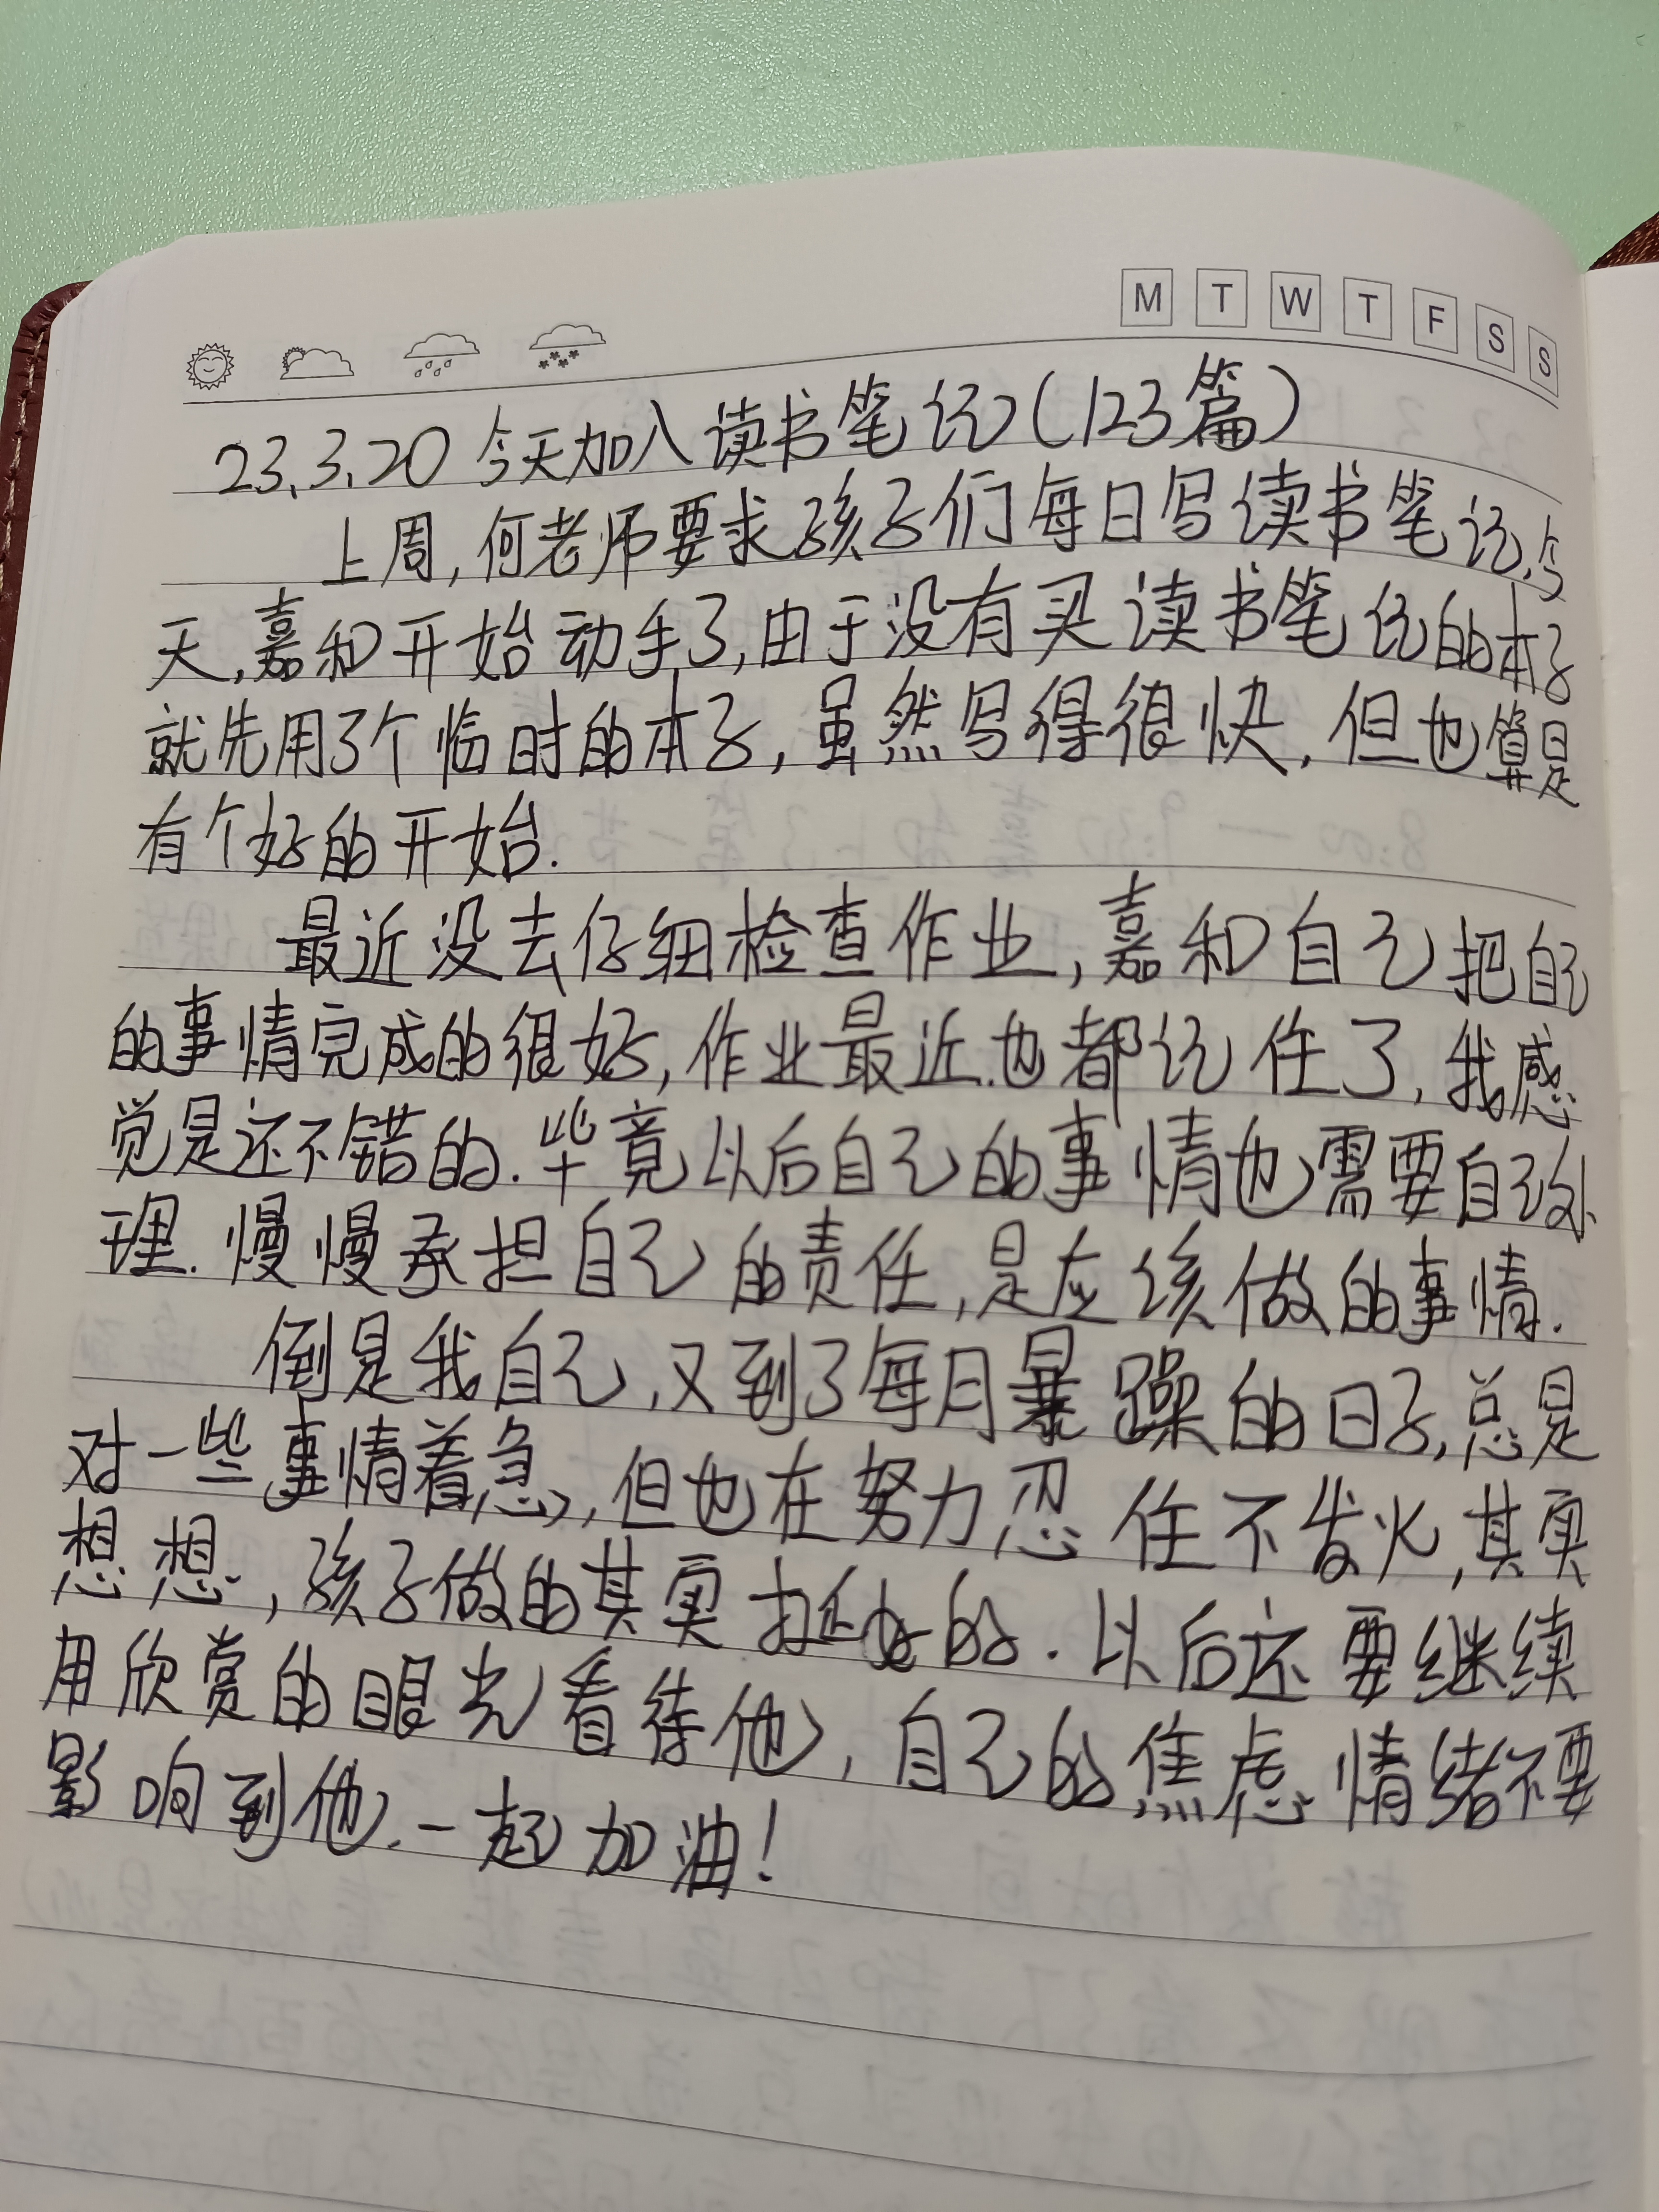 M T W T F S S
23.3.20 今天加入读书笔记(123篇)
上周,何老师要求孩子们每日写读书笔记.今
天,嘉和开始动手了,由于没有买读书笔记的本子
就先用了个临时的本子,虽然写得很快,但也算是
有个好的开始.
最近没去仔细检查作业,嘉和自己把自己
的事情完成的很好,作业最近也都记住了,我感
觉是还不错的.毕竟以后自己的事情也需要自己处
理.慢慢承担自己的责任,是应该做的事情.
倒是我自己,又到了每月暴躁的日子,总是
对一些事情着急,但也在努力忍住不发火,其实
想想,孩子做的其实挺好的.以后还要继续
用欣赏的眼光看待他,自己的焦虑情绪不要
影响到他.一起加油!